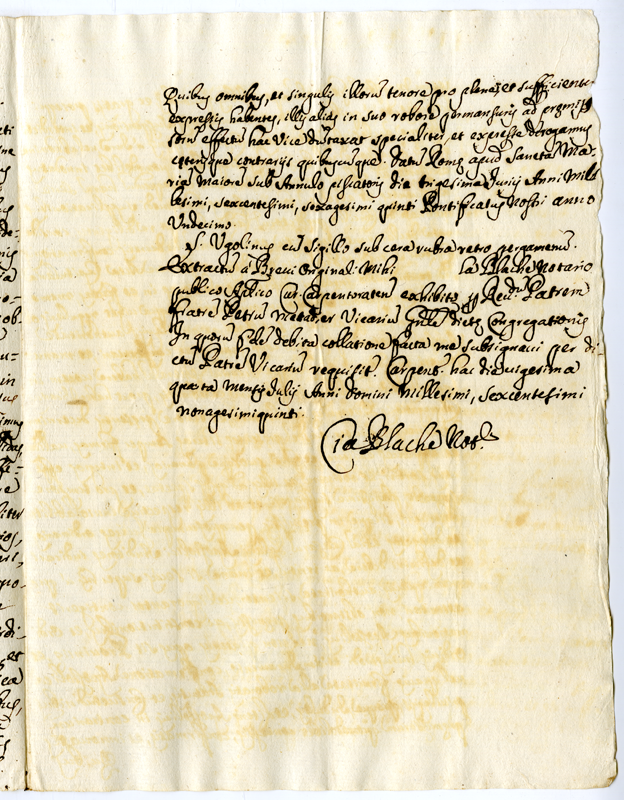 Quibus omnibus, et singulis illorũ tenore pro plene, et sufficienter
expressis habentes, illis alias in suo robore permansuris ad p̃missorũ effectũ hac vice dũtaxat specialiter et expresse derogamus
ceterisque contrarijs quibuscunque. Datũ Romę apud Sanctã Ma-
riã Maiorẽ sub Annulo piscatoris die trigesima Junij Anni Mil-
lesimi, sexcentesimi, sexagesimi quinti Pontificatus Nostri anno
Undecimo.
S. Ugolinus cũ sigillo sub cera rubra retro pergamenũ.
Extractũ à Brevi originali Mihi la Blache Notario
publico Aplico Cur. Carpentoraten exhibito p Revdũ Patrem
fratrẽ Petrũ Vicariũ Gñlẽ dictę Congregationis
In quorũ fidẽ debita collatione facta me subsignavi per di-
ctũ Patrẽ Vicariũ requisit. Carpent. hac die vigesima
quarta mensis Julij Anni domini Millesimi, sexcentesimi
nonagesimi quinti.
Blache Not.